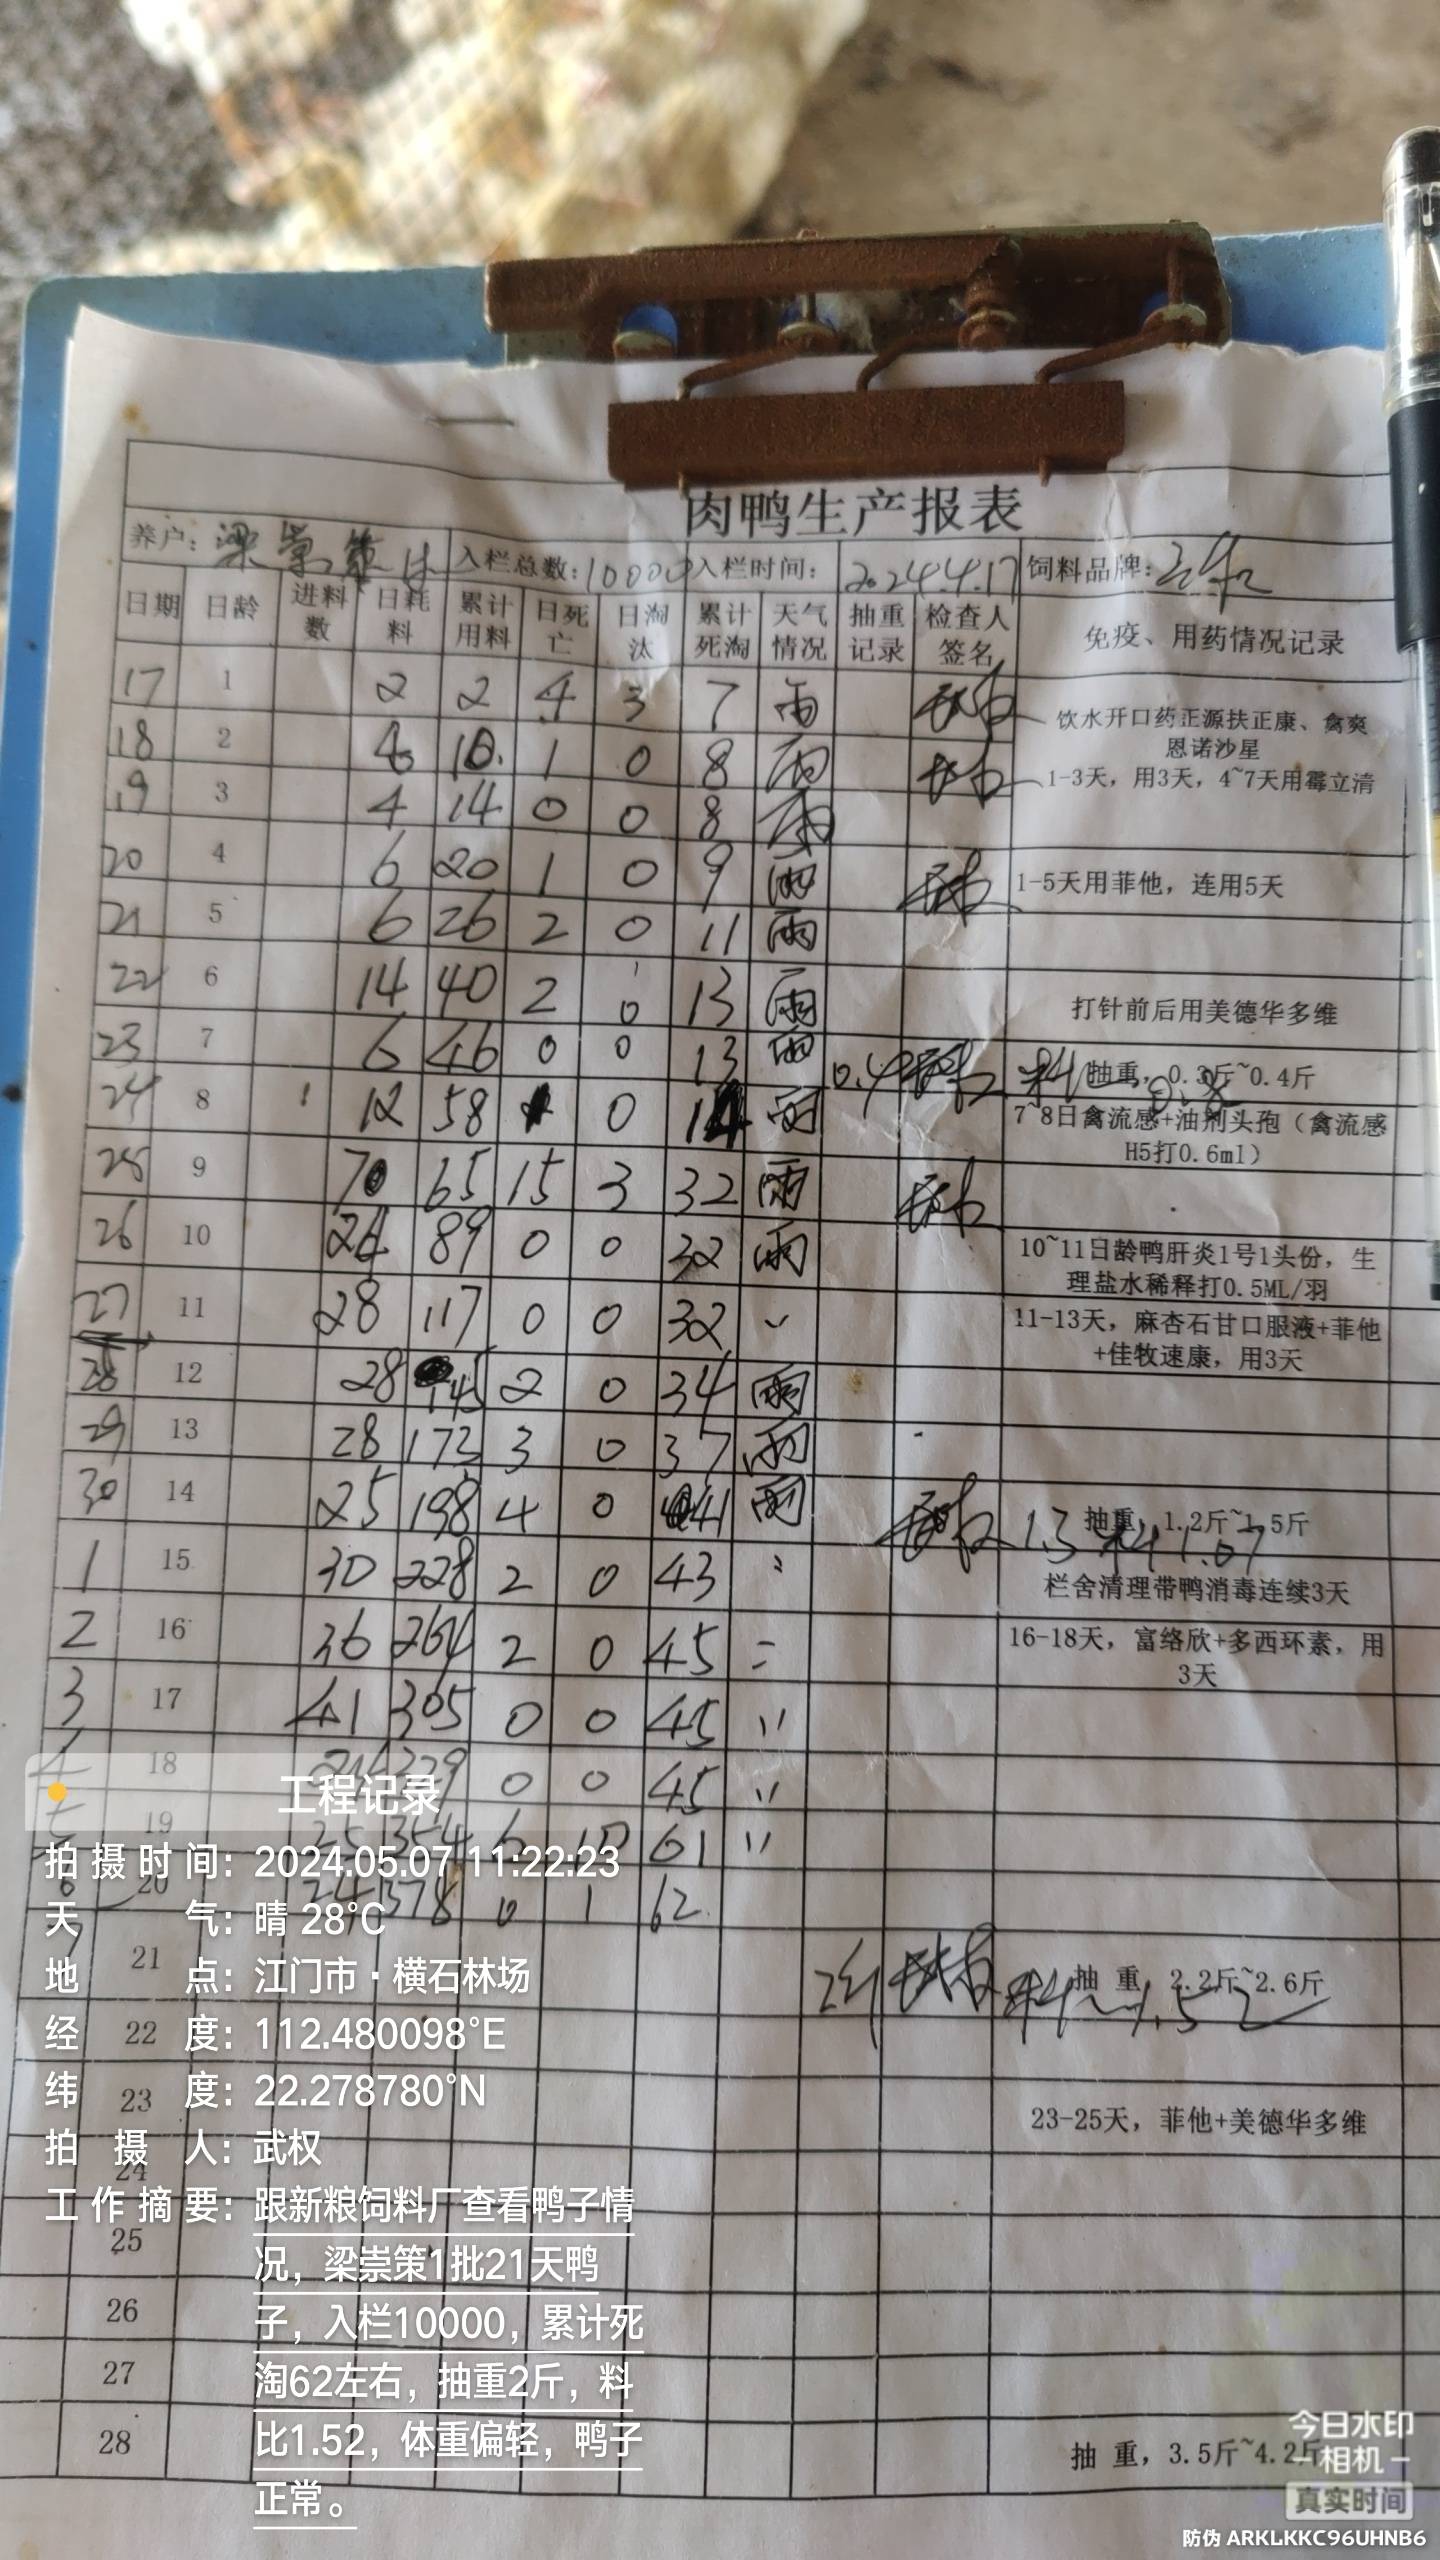 肉鸭生产报表
养户：梁崇策 入栏总数：10000 入栏时间：2024.4.17 饲料品牌：
日期 日龄 进料数 日耗料 累计用料 日死亡 日淘汰 累计死淘 天气情况 抽重记录 检查人签名 免疫、用药情况记录
17 1 2 2 4 3 7 雨
饮水开口药正源扶正康、禽爽
恩诺沙星
18 2 10. 1 0 8 雨
1-3天，用3天，4~7天用霉立清
19 3 4 14 0 0 8 雨
20 4 6 20 1 0 9 雨 1-5天用菲他，连用5天
21 5 6 26 2 0 11 雨
22 6 14 40 2 0 13 雨 打针前后用美德华多维
23 7 6 46 0 0 13 雨 抽重，0.3斤~0.4斤
24 8 12 58 0 14 雨 7~8日禽流感+油剂头孢（禽流感
H5打0.6ml）
25 9 65 15 3 32 雨
26 10 24 89 0 0 32 雨 10~11日龄鸭肝炎1号1头份，生
理盐水稀释打0.5ML/羽
27 11 28 117 0 0 32 11-13天，麻杏石甘口服液+菲他
+佳牧速康，用3天
28 12 28 145 2 0 34 雨
29 13 28 173 3 0 37 雨
30 14 25 198 4 0 41 雨 1.3 料1.07 抽重，1.2斤~1.5斤
1 15 30 228 2 0 43 〃 栏舍清理带鸭消毒连续3天
2 16 36 264 2 0 45 〃 16-18天，富络欣+多西环素，用
3天
3 17 41 305 0 0 45 〃
4 18 329 0 0 45 〃
5 19 25 354 6 10 61 〃
6 20 24 378 0 1 62
21 2斤 抽 重，2.2斤~2.6斤 料~1.52
22
23 23-25天，菲他+美德华多维
24
25
26
27
28 抽 重，3.5斤~4.2斤
工程记录
拍摄时间：2024.05.07 11:22:23
天气：晴 28℃
地点：江门市·横石林场
经度：112.480098°E
纬度：22.278780°N
拍摄人：武权
工作摘要：跟新粮饲料厂查看鸭子情
况，梁崇策1批21天鸭
子，入栏10000，累计死
淘62左右，抽重2斤，料
比1.52，体重偏轻，鸭子
正常。
今日水印
相机
真实时间
防伪 ARKLKKC96UHNB6